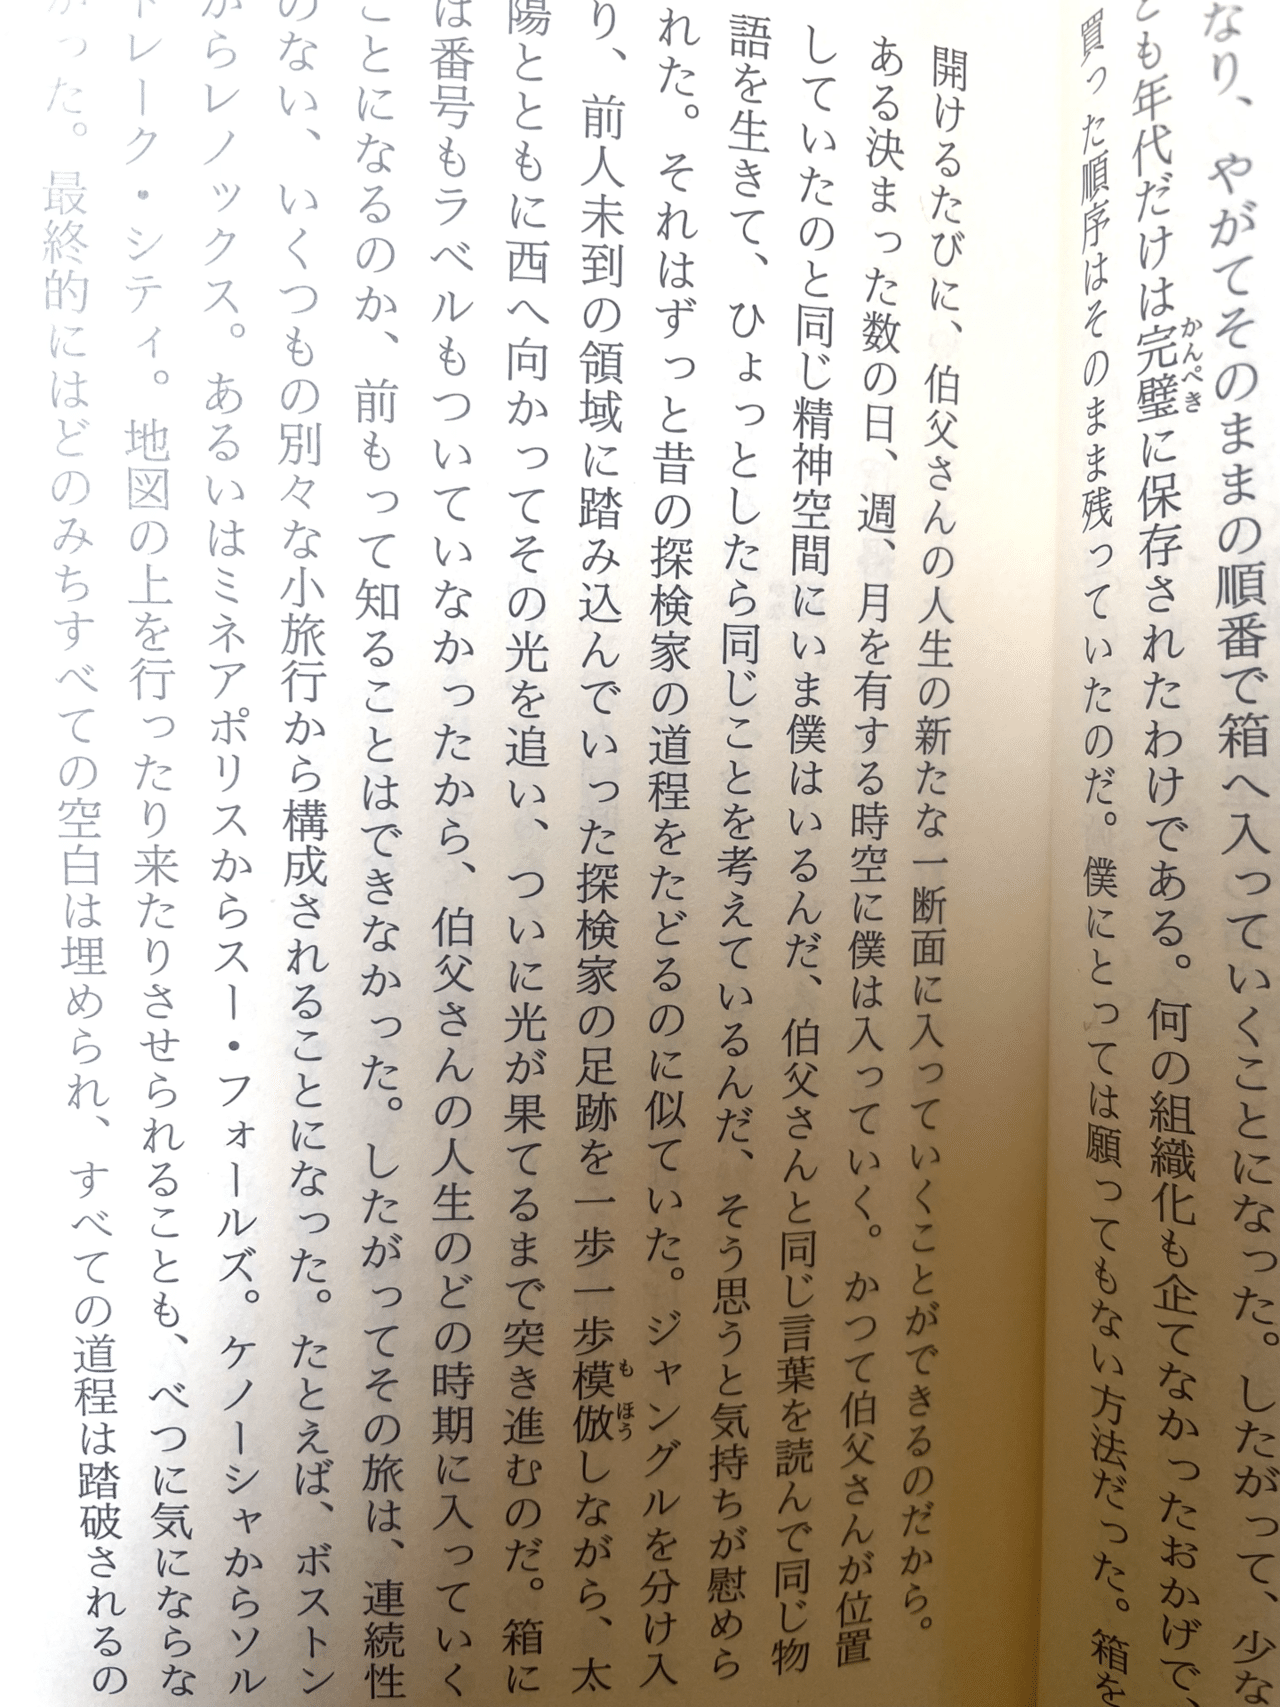 なり、やがてそのままの順番で箱へ入っていくことになった。したがって、少な
とも年代だけは完璧に保存されたわけである。何の組織化も企てなかったおかげで
かんぺき
買った順序はそのまま残っていたのだ。僕にとっては願ってもない方法だった。箱を
開けるたびに、伯父さんの人生の新たな一断面に入っていくことができるのだから。
ある決まった数の日、週、月を有する時空に僕は入っていく。かつて伯父さんが位置
していたのと同じ精神空間にいま僕はいるんだ、伯父さんと同じ言葉を読んで同じ物
語を生きて、ひょっとしたら同じことを考えているんだ、そう思うと気持ちが慰めら
れた。それはずっと昔の探検家の道程をたどるのに似ていた。ジャングルを分け入
り、前人未到の領域に踏み込んでいった探検家の足跡を一歩一歩模倣しながら、太
もほう
陽とともに西へ向かってその光を追い、ついに光が果てるまで突き進むのだ。箱に
は番号もラベルもついていなかったから、伯父さんの人生のどの時期に入っていく
ことになるのか、前もって知ることはできなかった。したがってその旅は、連続性
のない、いくつもの別々な小旅行から構成されることになった。たとえば、ボストン
からレノックス。あるいはミネアポリスからスー・フォールズ。ケノーシャからソル
トレーク・シティ。地図の上を行ったり来たりさせられることも、べつに気にならな
かった。最終的にはどのみちすべての空白は埋められ、すべての道程は踏破されるの